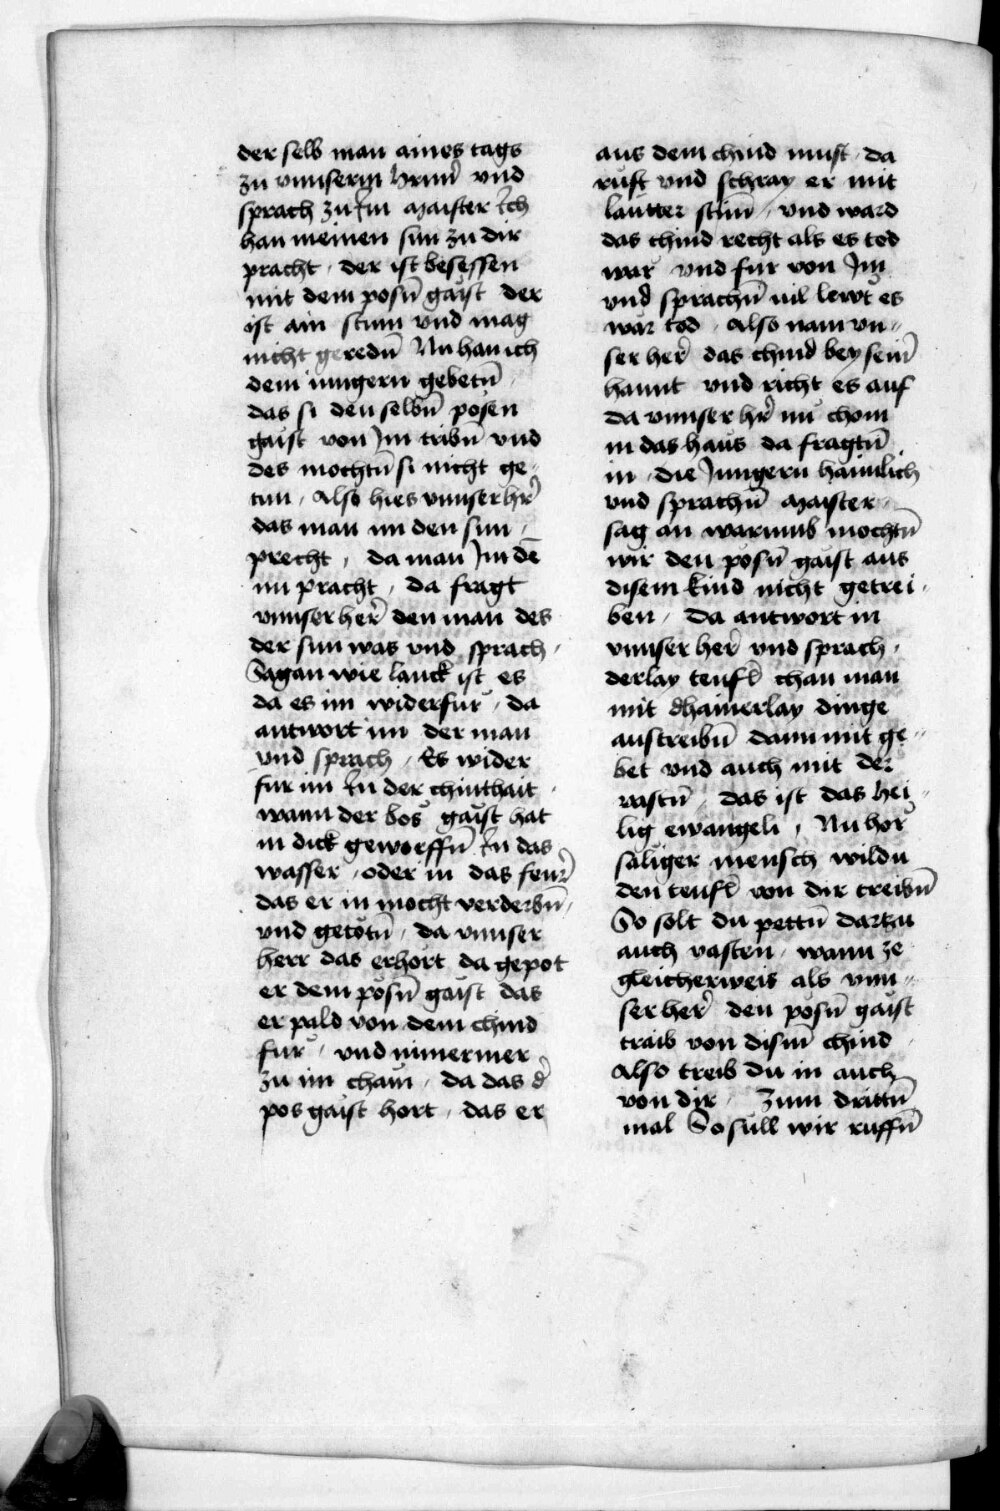 der selb man aines tags
zu vnnserm hrnn̄ vnd
sprach zu Im Maister Ich
han meinen sun zu dir
pracht / der ist besessen
mit dem posn̄ gaist der
ist ain stum vnd mag
nicht geredn̄ Nu han ich
dein iungern gebetn̄
das si den selbn̄ posen
gaist von Im tribn̄ vnd
des mochtn̄ si nicht ge-
tun / Also hies vnnser hr̄
das man im den sun /
precht / da man Im dē
nu pracht / da fragt
vnnser her̄ den man des
der sun was vnd sprach /
Sag an wie lanck ist es
da es im widerfur / da
antwort im der man
vnd sprach / Es wider
fur im In der chinthait /
wann der bos gaist hat
in dick geworffn̄ In das
wasser / oder in das feur̄
das er in mocht verderbn̄ /
vnd getotn̄ / da vnnser
herr das erhort da gepot
er dem posn̄ gaist das
er pald von dem chind
fur / vnd nimermer
zu im cham / da das d̄
pos gaist hort / das er
aus dem chind must / da
ruft vnd schray er mit
lautter stim̄ / vnd ward
das chind recht als es tod
war vnd fur von Im
vnd sprachn̄ vil lewt es
wär tod / Also nam vn-
ser her̄ das chind bey sein̄
hannt vnd richt es auf
da vnnser hr̄ nu chom
in das haus da fragtn̄
in / die Jungern haimlich
vnd sprachn̄ Maister /
sag an warumb mochtn̄
wir den posn̄ gaist aus
disem kind nicht getrei-
ben / Da antwort in
vnnser her̄ vnd sprach /
derlay teufl̄ chan man
mit dhainerlay dinge
austreibn̄ dann mit ge-
bet vnd auch mit der
vastn̄ / das ist das hei-
lig ewangeli / Nu hor
saliger mensch wildu
den teufl̄ von dir treibn̄
So solt du pettn̄ dartzu
auch vasten / wann ze
gleicherweis als vnn-
ser her̄ den posn̄ gaist
traib von dism̄ chind /
Also treib du in auch
von dir / Zum drittn̄
mal So sull wir ruffn̄